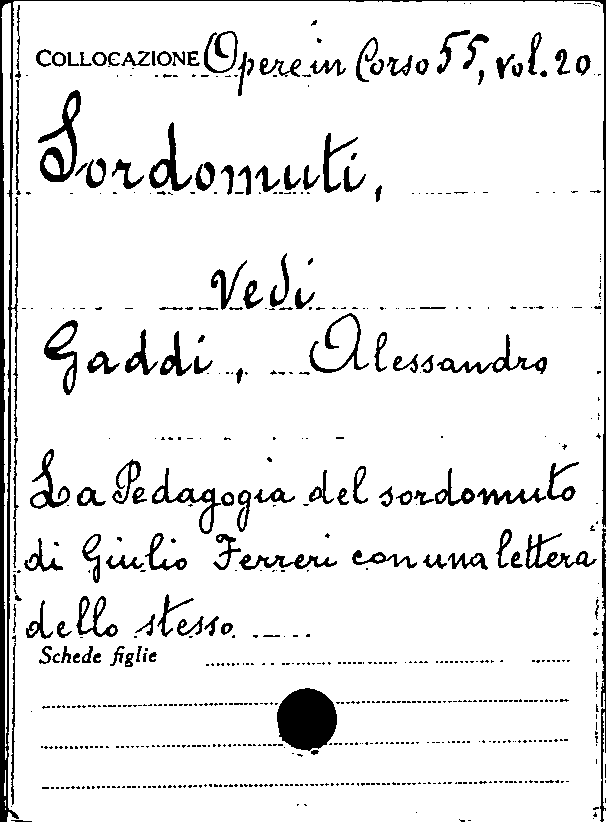 COLLOCAZIONE Opere in Corso 55, vol. 20
Sordomuti,
Vedi
Gaddi, Alessandro
La Pedagogia del sordomuto
di Giulio Ferreri con una lettera
dello stesso
Schede figlie